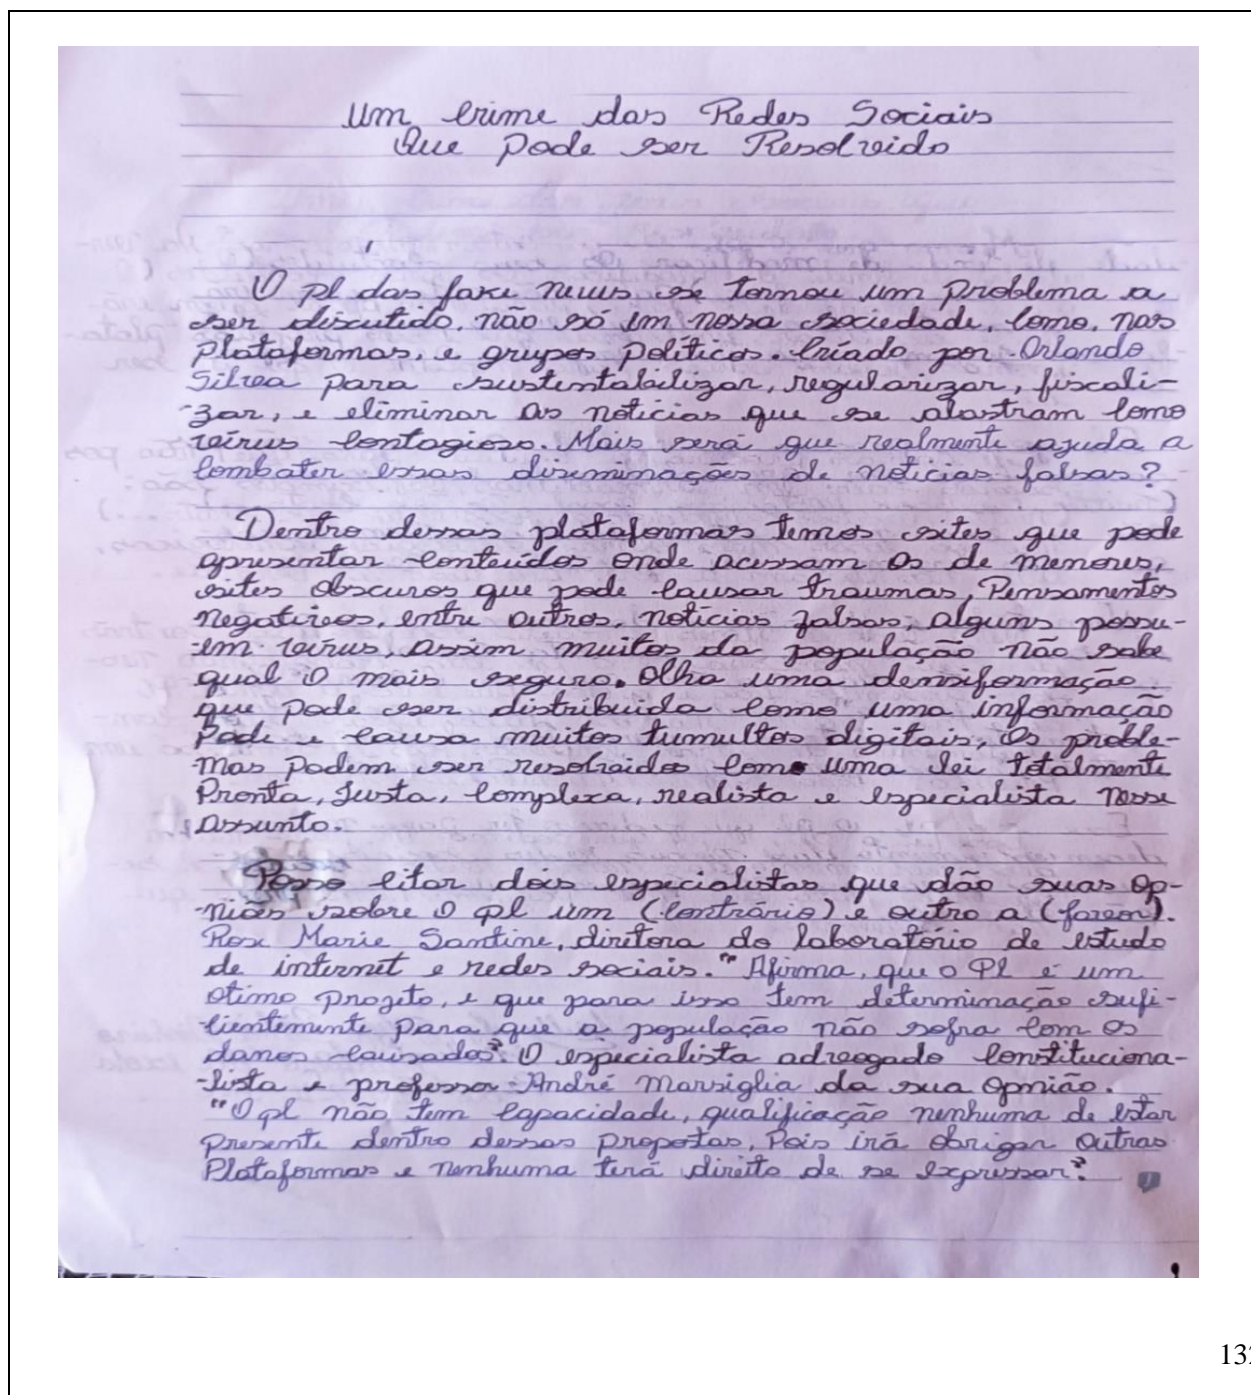 Um crime das Redes Sociais
Que Pode ser Resolvido
O pl das fake news se tornou um problema a
ser discutido, não só em nossa sociedade, como, nas
plataformas, e grupos políticos. Criado por Orlando
Silva para sustentabilizar, regularizar, fiscali-
-zar, e eliminar as notícias que se alastram como
vírus contagioso. Mais será que realmente ajuda a
combater essas diseminações de notícias falsas?
Dentro dessas plataformas temos sites que pode
apresentar conteúdos onde acessam os de menores,
sites obscuros que pode causar traumas, Pensamentos
negativos, entre outros, notícias falsas, alguns possu-
-em vírus, assim muitos da população não sabe
qual o mais seguro. Olha uma densiformação
que pode ser distribuida como uma informação
Pode e causa muitos tumultos digitais, Os proble-
mas podem ser resolvidos como uma lei totalmente
Pronta, Justa, complexa, realista e especialista nesse
assunto.
Posso citar dois especialistas que dão suas op-
-niões sobre o pl um (contrário) e outro a (favor).
Rose Marie Santine, diretora do laboratório de estudo
de internet e redes sociais. "Afirma, que o Pl é um
otimo projeto, e que para isso tem determinação sufi-
cientemente para que a população não sofra com os
danos causados". O especialista advogado constituciona-
-lista e professor André Marsiglia da sua opnião.
"O pl não tem capacidade, qualificação nenhuma de estar
presente dentro dessas propostas, Pois irá obrigar outras
Plataformas e nenhuma terá direito de se expressar".